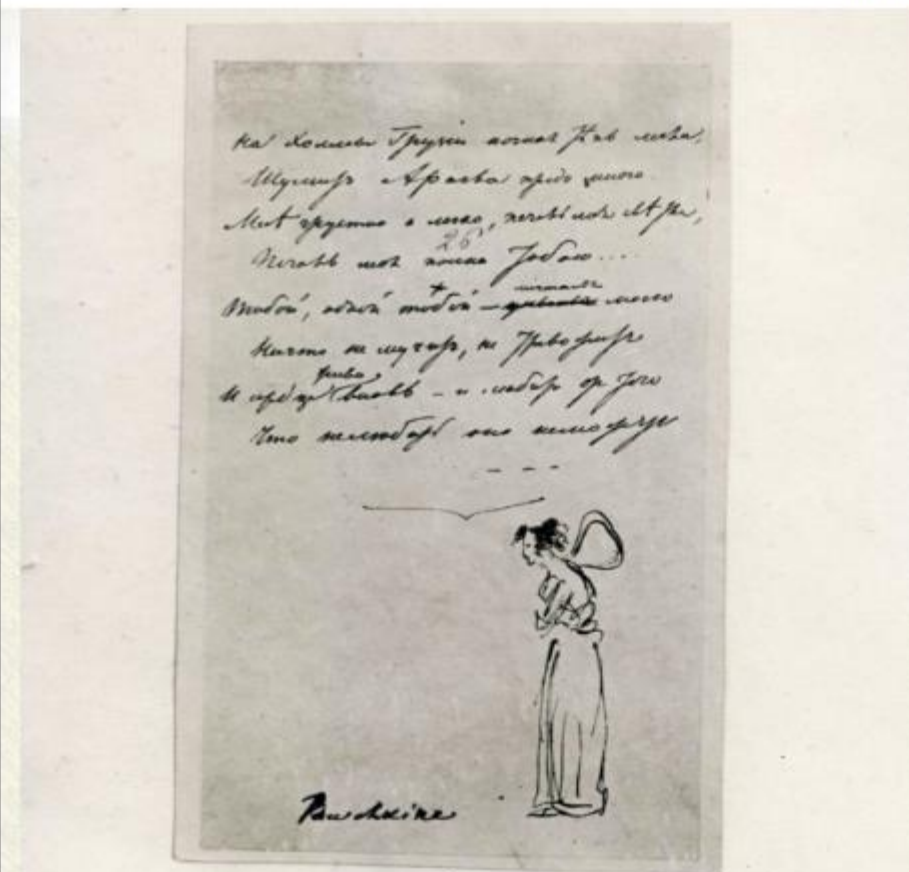 На холмы Грузiи ночная тѣнь легла,
Шумитъ Арагва предо мною.
Мнѣ грустно и легко, печаль моя свѣтла,
26
Печаль моя полна Тобою...
Тобой, одной тобой — моего
Ничто не мучитъ, не тревожитъ
И сердце вновь — и любитъ отъ того
Что не любить оно не можетъ
Pouchkine